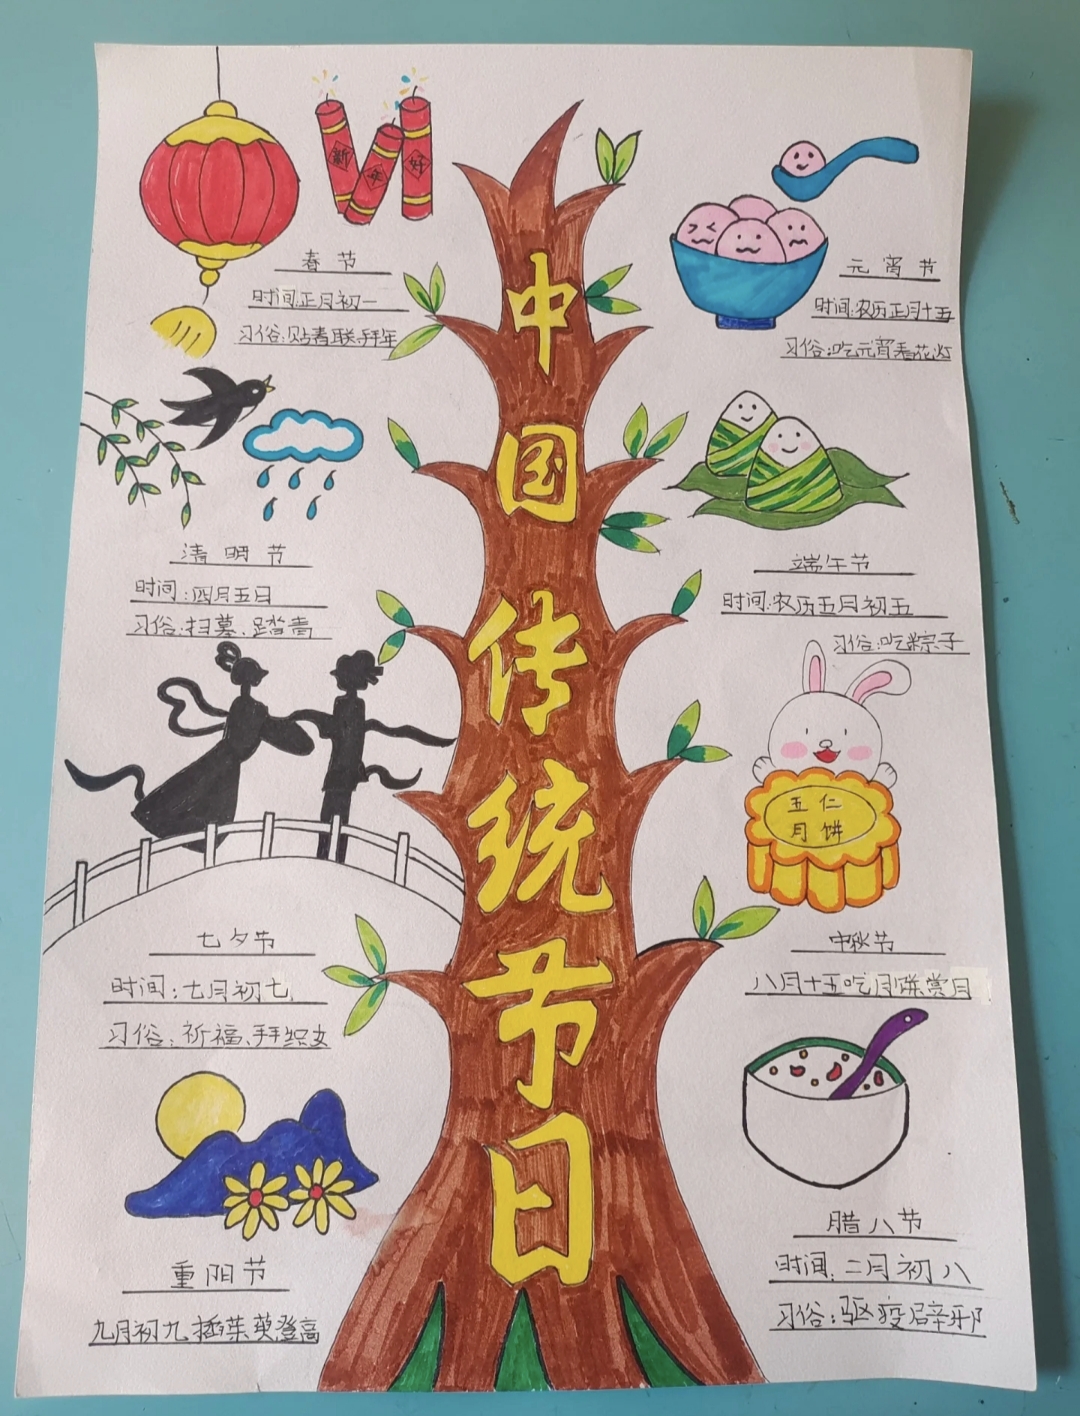 中国传统节日
新年好
春节
时间:正月初一
习俗:贴春联、拜年
元宵节
时间:农历正月十五
习俗:吃元宵看花灯
清明节
时间:四月五日
习俗:扫墓、踏青
端午节
时间:农历五月初五
习俗:吃粽子
七夕节
时间:七月初七
习俗:祈福、拜织女
五仁
月饼
中秋节
八月十五吃月饼赏月
重阳节
九月初九插茱萸登高
腊八节
时间:二月初八
习俗:驱疫辟邪